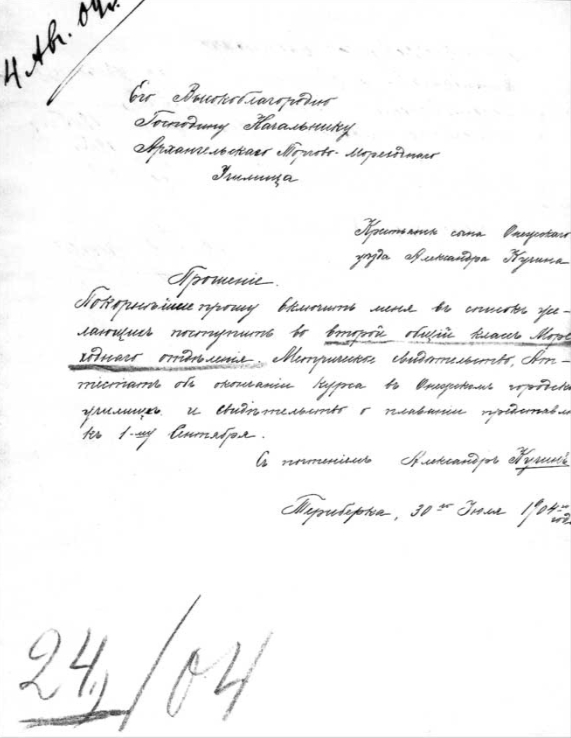 4 Авг. 04 г.
Его Высокоблагородию
Господину Начальнику
Архангельскаго Торгово-Мореходнаго
Училища
Крестьянск. сына Онежскаго
уезда Александра Кучина
Прошеніе.
Покорнѣйше прошу включить меня въ список же-
лающихъ поступить во второй общій классъ Море
ходнаго отдѣленія. Метрическое свидѣтельство, Ат-
тестатъ объ окончаніи курса въ Онежскомъ городск
училищѣ и свидѣтельство о плаваніи представлю
къ 1-му Сентября.
Съ почтеніемъ Александръ Кучинъ
Териберка, 30го Іюля 1904го год
24/04